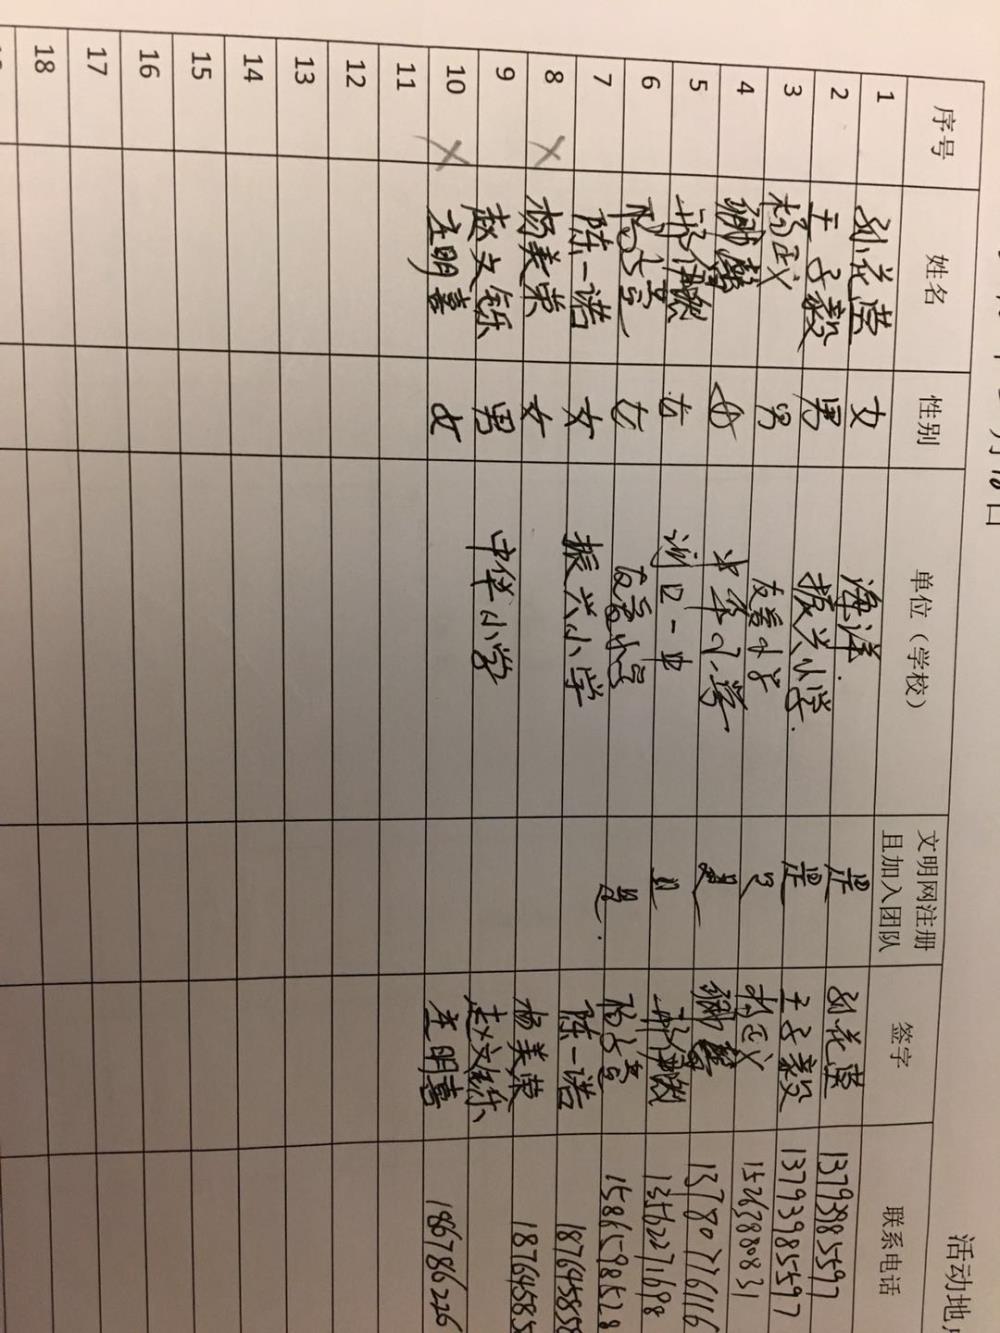 月18日
活动地
序号 姓名 性别 单位（学校） 文明网注册且加入团队 签字 联系电话
1 孙花莹 女 海洋 是 孙花莹 13793985597
2 王子毅 男 振兴小学. 是 王子毅 13793985597
3 杨斌 男 友爱小学 是 15263880831
4 女 中华小学 是 13780776116
5 女 河口一中 是 13562271698
6 女 友爱小学 是. 15865985528
7 陈一诺 女 振兴小学 陈一诺 187645855
8 杨美荣 女 杨美荣 187645855
9 赵文铄 男 中华小学 赵文铄
10 王明喜 女 王明喜 186786226
11
12
13
14
15
16
17
18